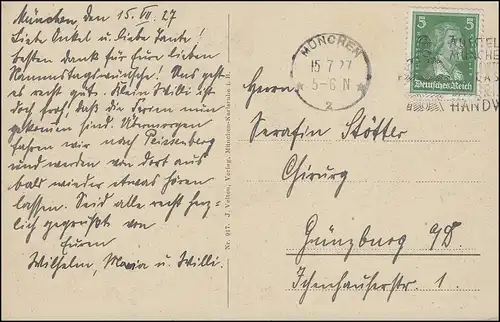 München, den 15. VII. 27
Liebe Onkel u. liebe Tante!
besten Dank für Eure lieben
Namenstagswünsche! Uns geht
es recht gut. Klein Willi ist
doch froh, daß die Ferien nun
gekommen sind. Übermorgen
fahren wir nach Peissenberg
und werden von dort aus
bald wieder etwas hören
lassen. Seid alle recht herz-
lich gegrüßt von
Euren
Wilhelm, Maria u. Willi.
Nr. 917. J. Velten, Verlag, München-Karlsruhe i. B.
MÜNCHEN
15.7.27
5-6 N
* 2 *
5 5
Deutsches Reich
HANDW
Herrn
Serafin Stötter
Chirurg
Günzburg a/D.
Ichenhauserstr. 1.